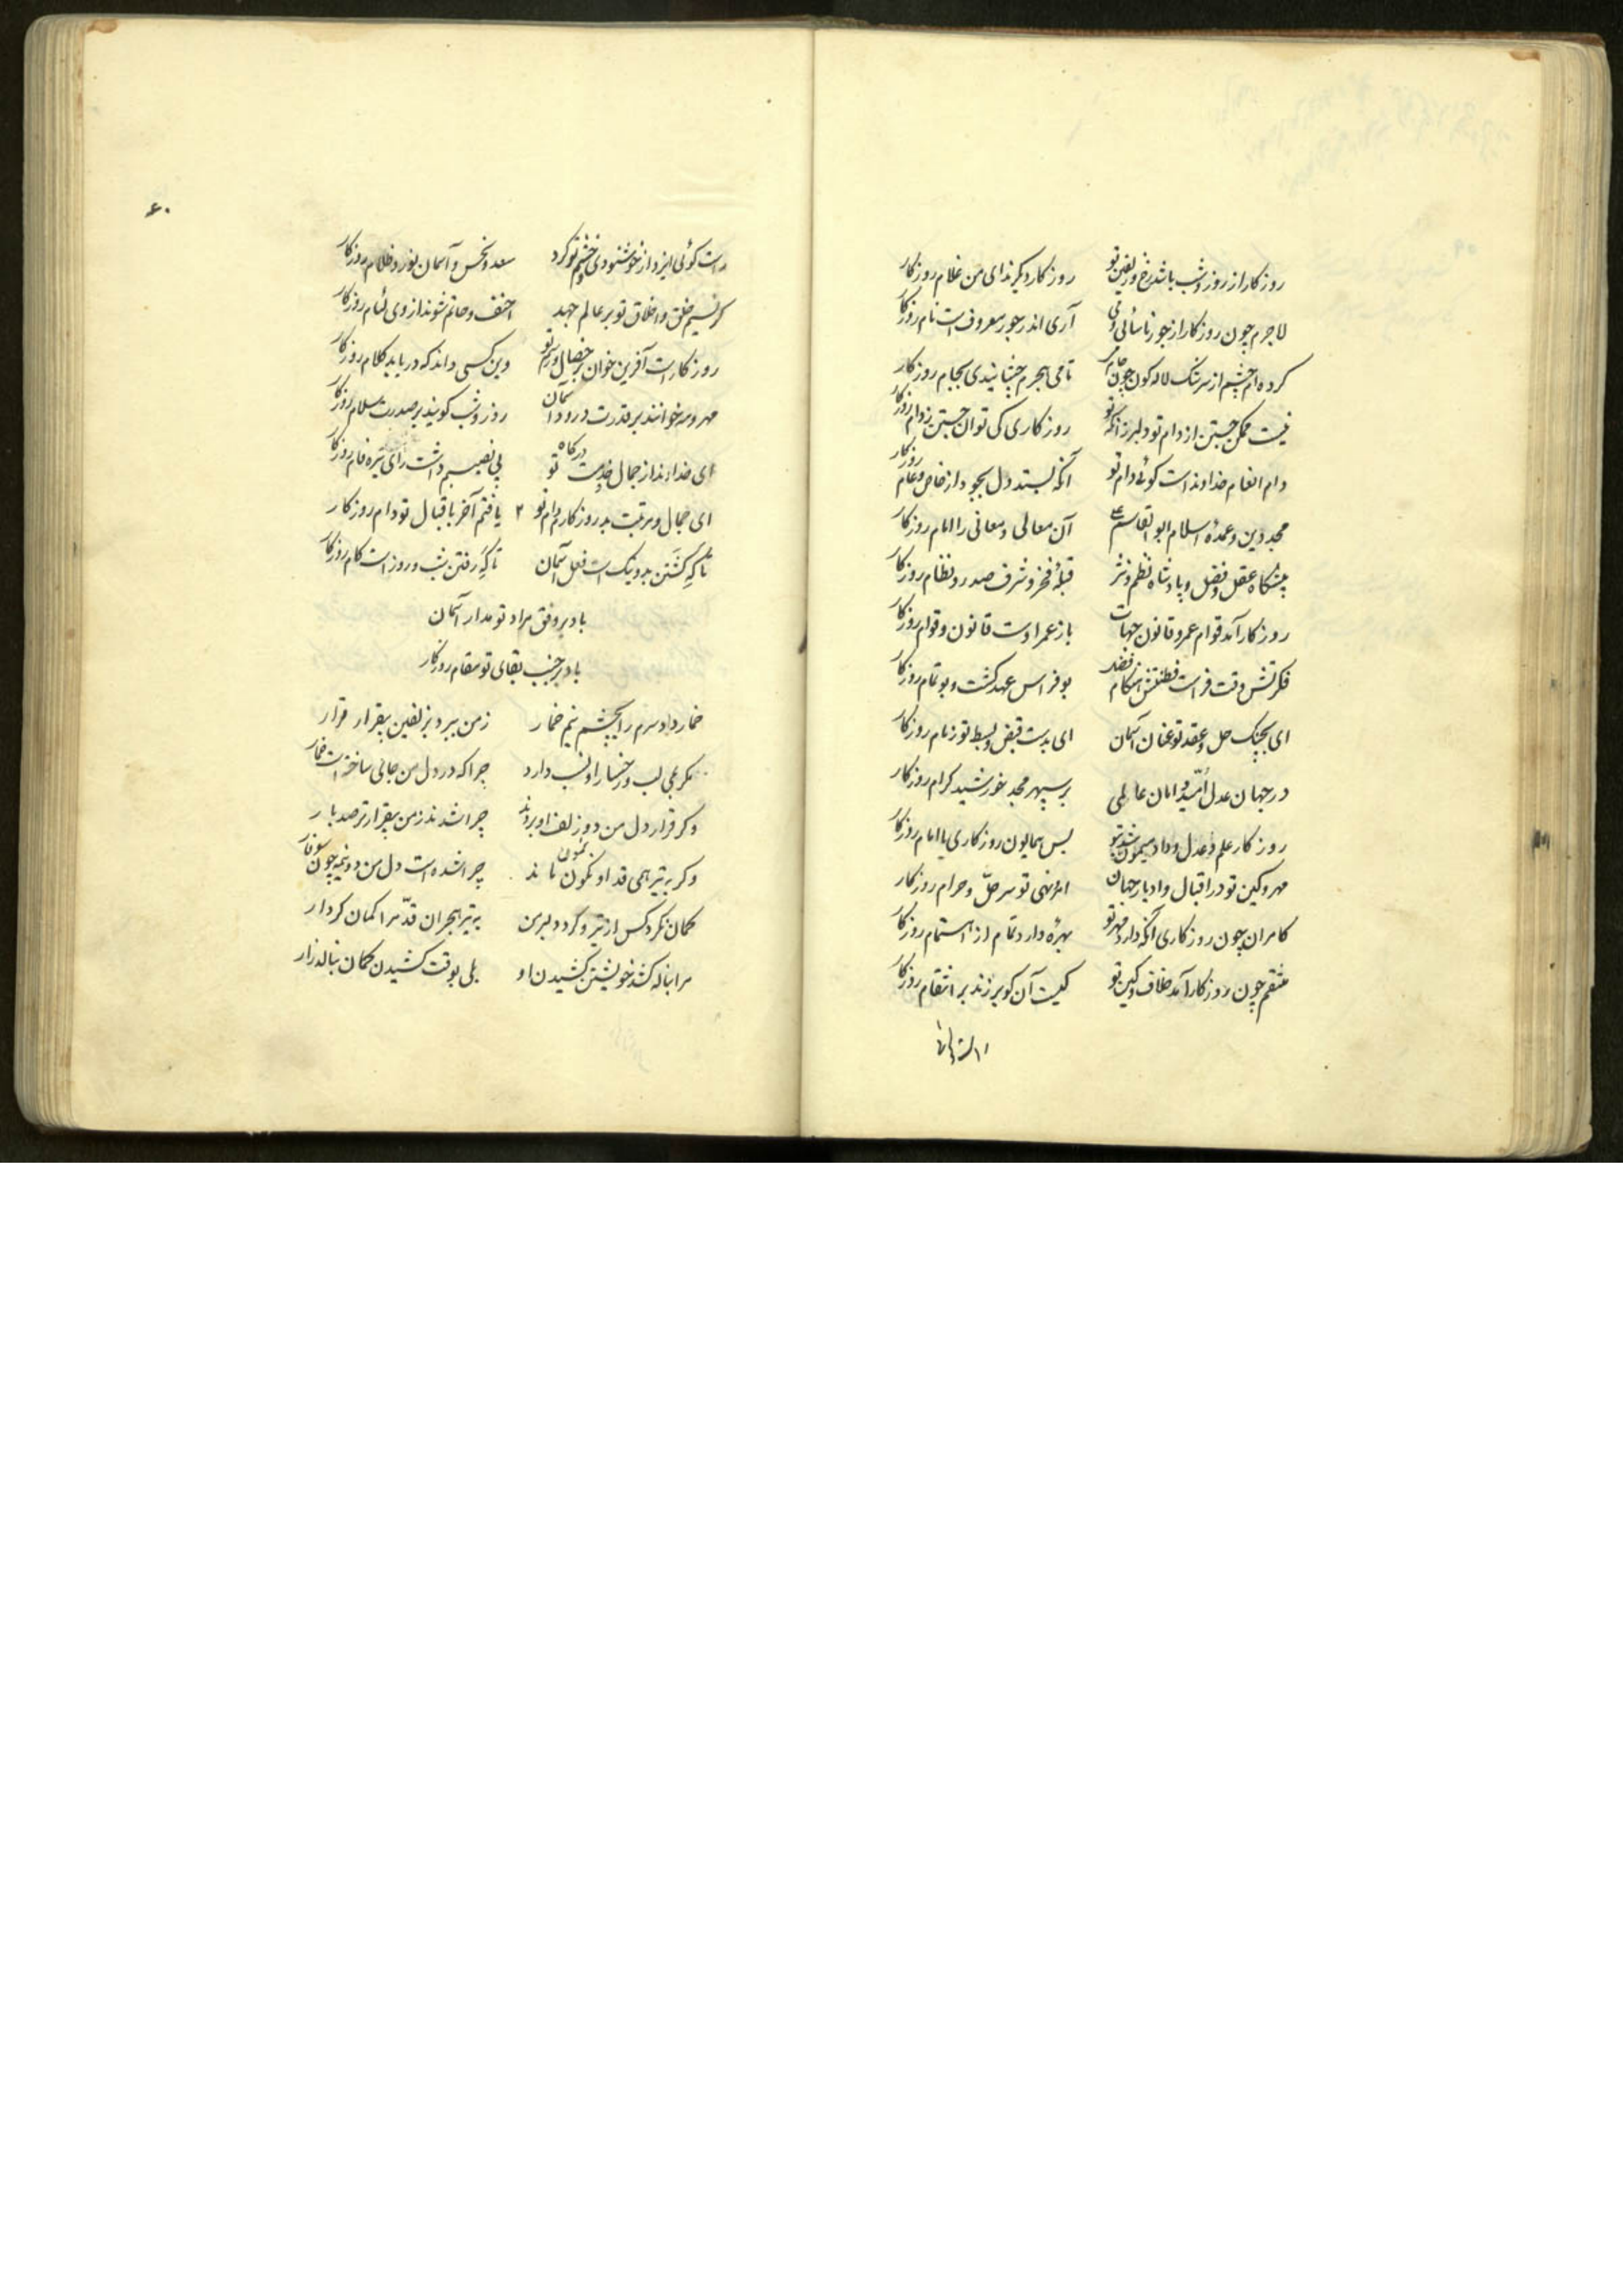 روزکار از روز و شب باشد رخ و زلفین تو روزکار دیکرند ای من غلام روزکار
لاجرم چون روزکار از جور ناسائی دمی آری اندر جور معروف است نام روزکار
کرده ام چشم از سرشک لاله کون چون جام می تا می هجرم چشانیدی بجام روزکار
نیست ممکن جستن از دام تو دلبر زانکه تو روزکاری کی توان جستن ز دام روزکار
دام انعام خداوند است کوئی دام تو آنکه بستد دل بجود از خاص و عام روزکار
مجد دین و عمدهٔ اسلام ابوالقاسم علی آن معالی و معانی را امام روزکار
پیشکاه عقل و فضل و پادشاه نظم و نثر قبلهٔ فخر و شرف صدر و نظام روزکار
روزکار آمد قوام عمر و قانون جهات باز عمر اوست قانون و قوام روزکار
فکرتش وقت فراست فطنتش هنکام فضل بوفراس عهد کشت و بوتمام روزکار
ای بچنک حل و عقد تو عنان آسمان ای بدست قبض و بسط تو زمام روزکار
در جهان عدل امّید و امان عالمی بر سپهر مجد خورشید کرام روزکار
روزکار علم و عدل و داد میمون شد بتو بس همایون روزکاری یا امام روزکار
مهر و کین تو در اقبال و ادبار جهان امر و نهی تو سر حلّ و حرام روزکار
کامران چون روزکاری آنکه دارد مهر تو بهره دارد تمام از اهتمام روزکار
منتقم چون روزکار آمد خلاف و کین تو کیست آن کو بر زند بر انتقام روزکار
راست کوئی
۶۰
راست کوئی ایزد از خوشنودی و خشم تو کرد سعد و نحس و آسمان نور و ظلام روزکار
کر نسیم خلق و اخلاق تو بر عالم جهد احنف و حاتم شوند از وی لئام روزکار
روزکارت آفرین خوان بر خصال و رسم تو وین کسی داند که دریابد کلام روزکار
مهر و مه خوانند بر قدرت درود آسمان روز و شب کویند بر صدرت سلام روزکار
ای خداوند از جمال خدمت درکاه تو بی نصیبم داشت رای تیره فام روزکار
ای جمال و مرتبت بد روزکارم وام تو ۲ یافتم آخر باقبال تو دام روزکار
تا که کشتن بد و نیک است فعل آسمان تا که رفتن بشب و روز است کام روزکار
باد بر وفق مراد تو مدار آسمان
باد بر جنب بقای تو مقام روزکار
خمار داد سرم را بچشم نیم خمار ز من ببرد بزلفین بیقرار قرار
مکر بمی لب و رخسار او نسب دارد چرا که در دل من جای ساخته است خمار
وکر قرار دل من دو زلف او بردند چرا شدند ز من بیقرارتر صد بار
وکر به تیر همی قد او نمون ماند چرا شده است دل من دو نیمه چون سوفار
کمان نکرد کس از تیر و کرد دلبر من به تیر هجران قدّ مرا کمان کردار
مرا بناله کشد خویشتن کشیدن او بلی بوقت کشیدن کمان بنالد زار